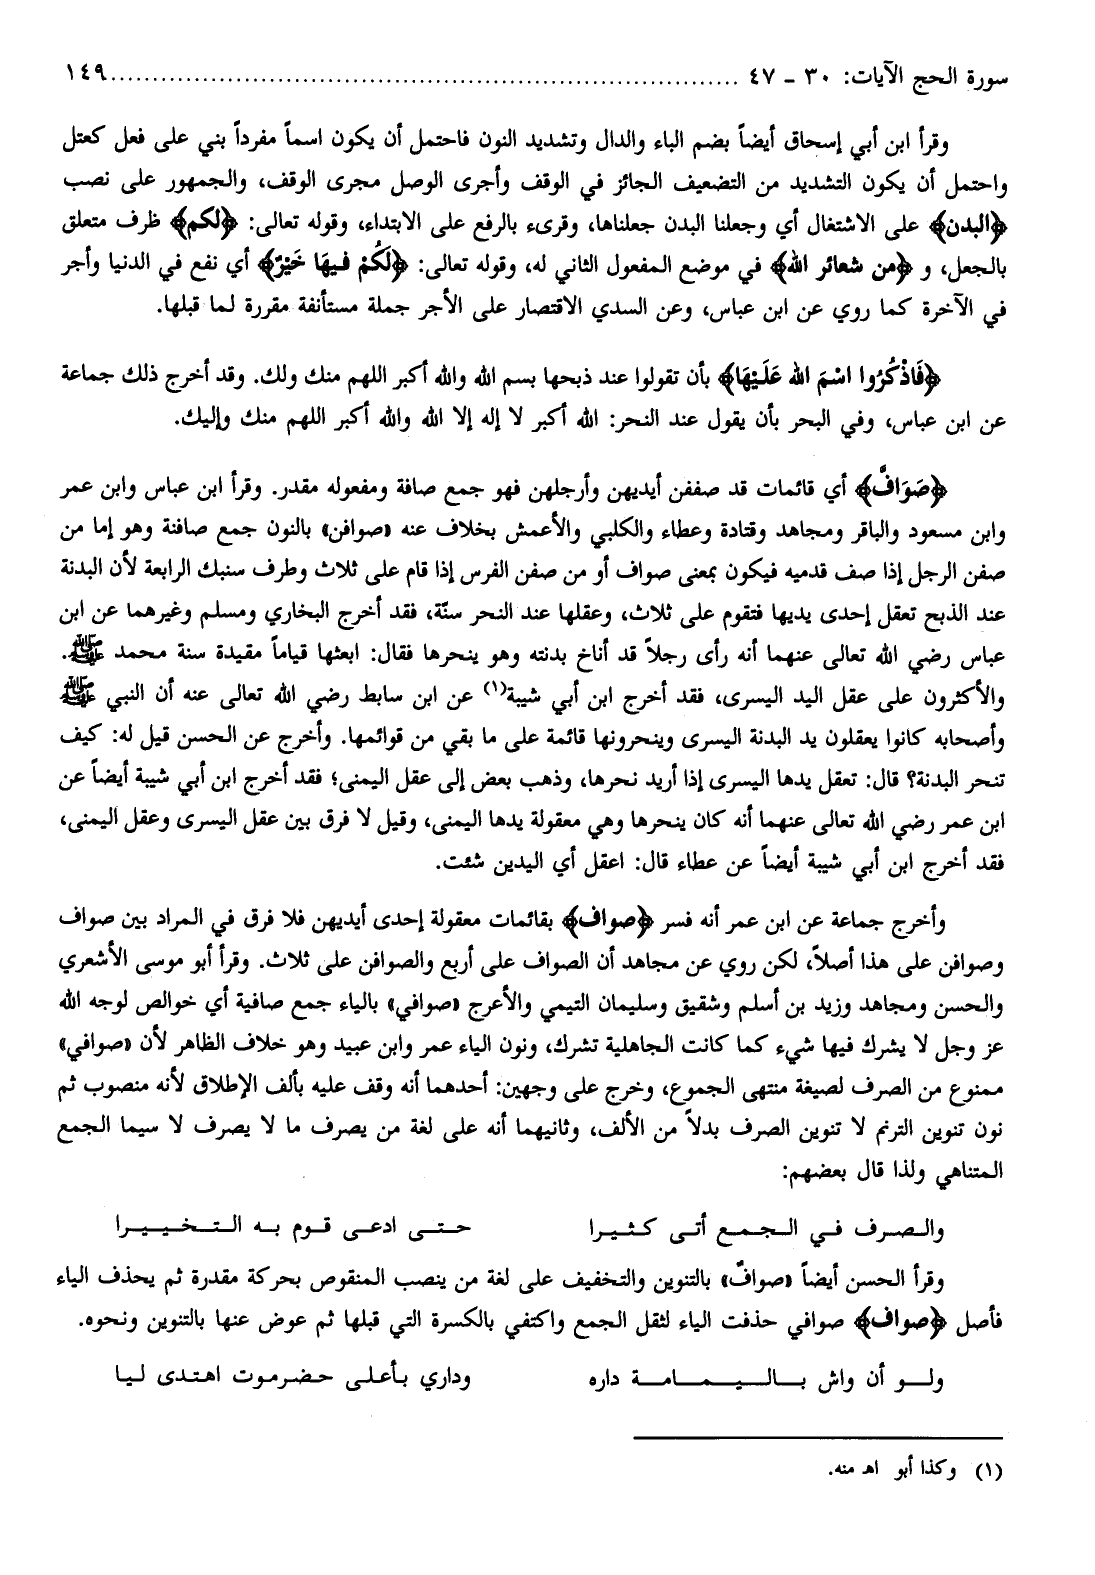 سورة الحج الآيات: ٣٠ - ٤٧ ............................................................ ١٤٩
وقرأ ابن أبي إسحاق أيضاً بضم الباء والدال وتشديد النون فاحتمل أن يكون اسماً مفرداً بني على فعل كعتل
واحتمل أن يكون التشديد من التضعيف الجائز في الوقف وأجرى الوصل مجرى الوقف، والجمهور على نصب
﴿البدن﴾ على الاشتغال أي وجعلنا البدن جعلناها، وقرىء بالرفع على الابتداء، وقوله تعالى: ﴿لكم﴾ ظرف متعلق
بالجعل، و ﴿من شعائر الله﴾ في موضع المفعول الثاني له، وقوله تعالى: ﴿لَكُمْ فِيهَا خَيْرٌ﴾ أي نفع في الدنيا وأجر
في الآخرة كما روي عن ابن عباس، وعن السدي الاقتصار على الأجر جملة مستأنفة مقررة لما قبلها.
﴿فَاذْكُرُوا اسْمَ الله عَلَيْهَا﴾ بأن تقولوا عند ذبحها بسم الله والله أكبر اللهم منك ولك. وقد أخرج ذلك جماعة
عن ابن عباس، وفي البحر بأن يقول عند النحر: الله أكبر لا إله إلا الله والله أكبر اللهم منك وإليك.
﴿صَوَافَّ﴾ أي قائمات قد صففن أيديهن وأرجلهن فهو جمع صافة ومفعوله مقدر. وقرأ ابن عباس وابن عمر
وابن مسعود والباقر ومجاهد وقتادة وعطاء والكلبي والأعمش بخلاف عنه «صوافن» بالنون جمع صافنة وهو إما من
صفن الرجل إذا صف قدميه فيكون بمعنى صواف أو من صفن الفرس إذا قام على ثلاث وطرف سنبك الرابعة لأن البدنة
عند الذبح تعقل إحدى يديها فتقوم على ثلاث، وعقلها عند النحر سنّة، فقد أخرج البخاري ومسلم وغيرهما عن ابن
عباس رضي الله تعالى عنهما أنه رأى رجلاً قد أناخ بدنته وهو ينحرها فقال: ابعثها قياماً مقيدة سنة محمد ﷺ.
والأكثرون على عقل اليد اليسرى، فقد أخرج ابن أبي شيبة(١) عن ابن سابط رضي الله تعالى عنه أن النبي ﷺ
وأصحابه كانوا يعقلون يد البدنة اليسرى وينحرونها قائمة على ما بقي من قوائمها. وأخرج عن الحسن قيل له: كيف
تنحر البدنة؟ قال: تعقل يدها اليسرى إذا أريد نحرها، وذهب بعض إلى عقل اليمنى؛ فقد أخرج ابن أبي شيبة أيضاً عن
ابن عمر رضي الله تعالى عنهما أنه كان ينحرها وهي معقولة يدها اليمنى، وقيل لا فرق بين عقل اليسرى وعقل اليمنى،
فقد أخرج ابن أبي شيبة أيضاً عن عطاء قال: اعقل أي اليدين شئت.
وأخرج جماعة عن ابن عمر أنه فسر ﴿صواف﴾ بقائمات معقولة إحدى أيديهن فلا فرق في المراد بين صواف
وصوافن على هذا أصلاً، لكن روي عن مجاهد أن الصواف على أربع والصوافن على ثلاث. وقرأ أبو موسى الأشعري
والحسن ومجاهد وزيد بن أسلم وشقيق وسليمان التيمي والأعرج «صوافي» بالياء جمع صافية أي خوالص لوجه الله
عز وجل لا يشرك فيها شيء كما كانت الجاهلية تشرك، ونون الياء عمر وابن عبيد وهو خلاف الظاهر لأن «صوافي»
ممنوع من الصرف لصيغة منتهى الجموع، وخرج على وجهين: أحدهما أنه وقف عليه بألف الإطلاق لأنه منصوب ثم
نون تنوين الترنم لا تنوين الصرف بدلاً من الألف، وثانيهما أنه على لغة من يصرف ما لا يصرف لا سيما الجمع
المتناهي ولذا قال بعضهم:
والصرف في الجمع أتى كثيرا حتى ادعى قوم به التخييرا
وقرأ الحسن أيضاً «صوافٌ» بالتنوين والتخفيف على لغة من ينصب المنقوص بحركة مقدرة ثم يحذف الياء
فأصل ﴿صواف﴾ صوافي حذفت الياء لثقل الجمع واكتفي بالكسرة التي قبلها ثم عوض عنها بالتنوين ونحوه.
ولو أن واش باليمامة داره وداري بأعلى حضرموت اهتدى ليا
(١) وكذا أبو اهـ منه.